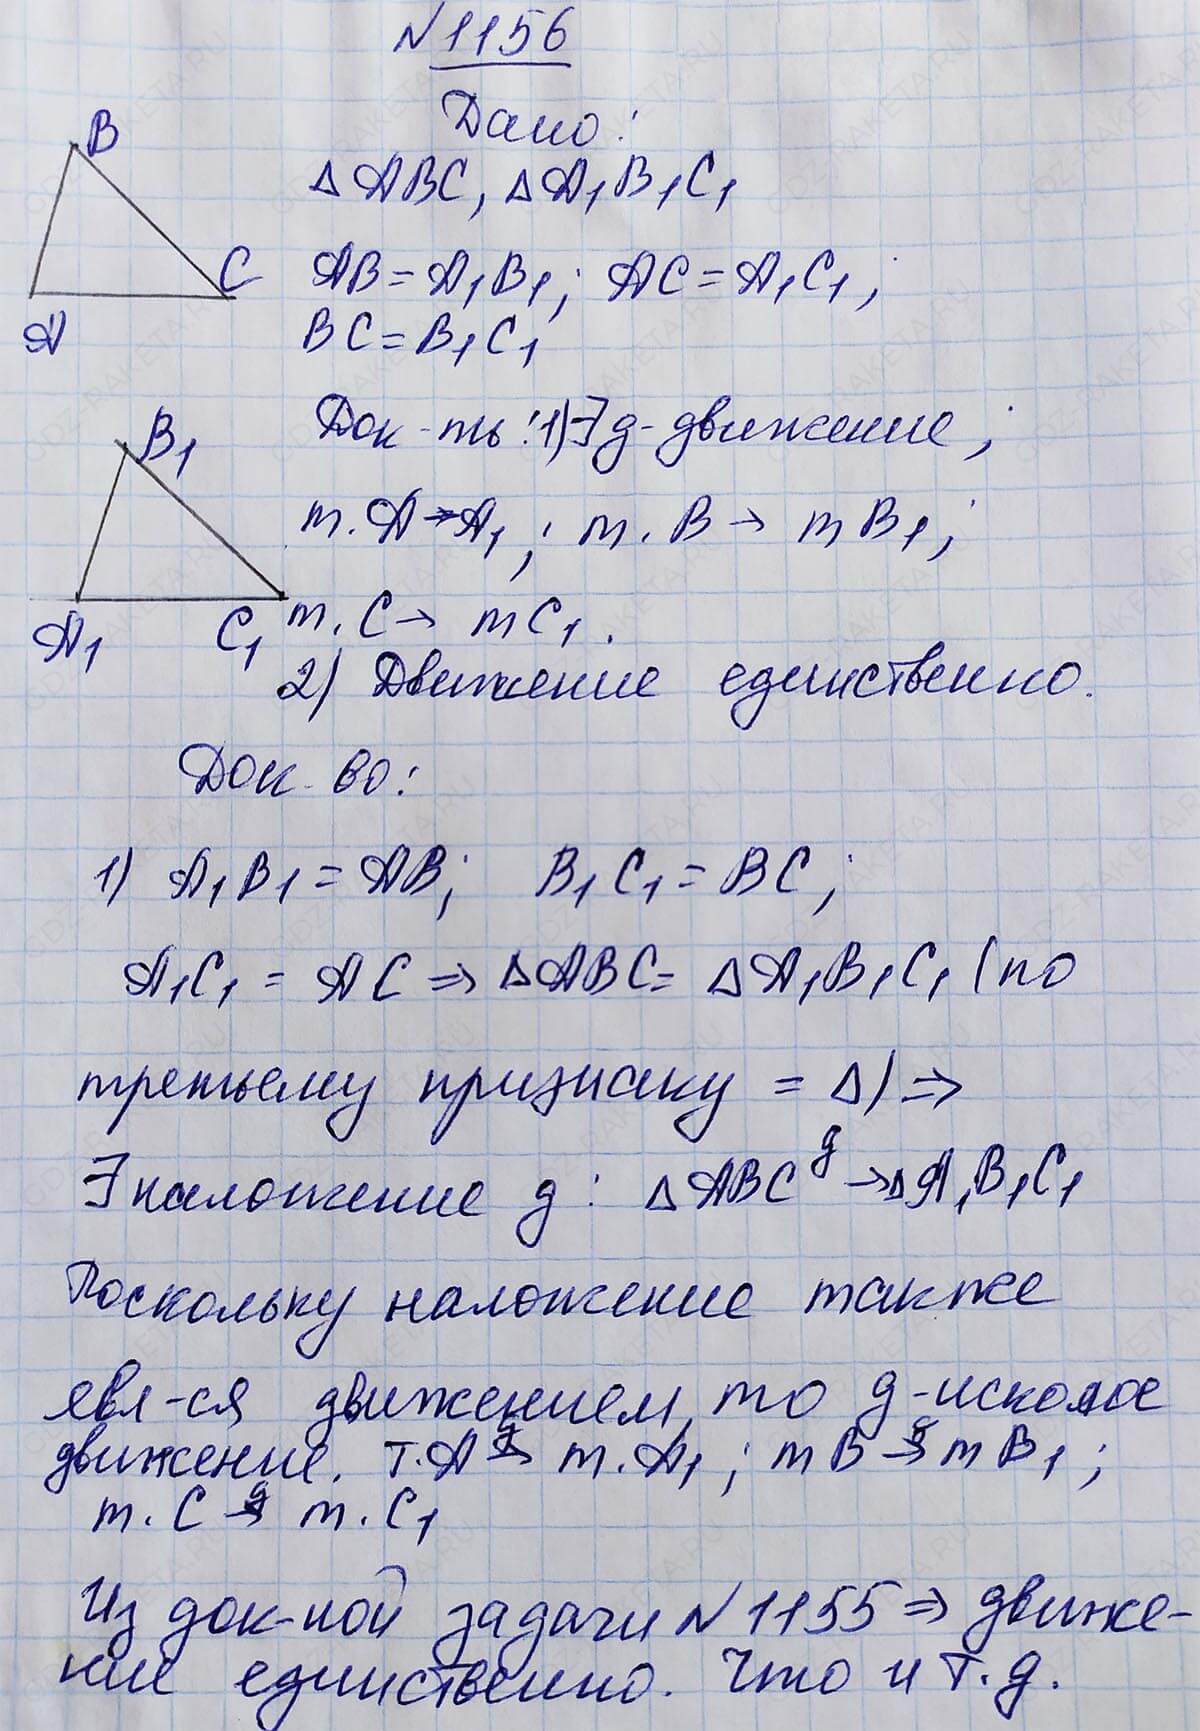 №1156
Дано:
В
△ABC, △A₁B₁C₁
С
AB=A₁B₁; AC=A₁C₁;
А
BC=B₁C₁
B₁
Док-ть: 1) ∃ g-движение;
т. A→A₁; т. B→ т B₁;
A₁ C₁
т. C→ т C₁.
2) Движение единственно.
Док-во:
1) A₁B₁=AB; B₁C₁=BC;
A₁C₁ = AC ⇒ △ABC= △A₁B₁C₁ (по
третьему признаку = △) ⇒
∃ наложение g: △ABC g→ △A₁B₁C₁
Поскольку наложение также
явл-ся движением, то g-искомое
движение. т. A g→ т. A₁; т B g→ т B₁;
т. C g→ т. C₁
Из док-ной задачи №1155 ⇒ движе-
ние единственно. Что и т. д.